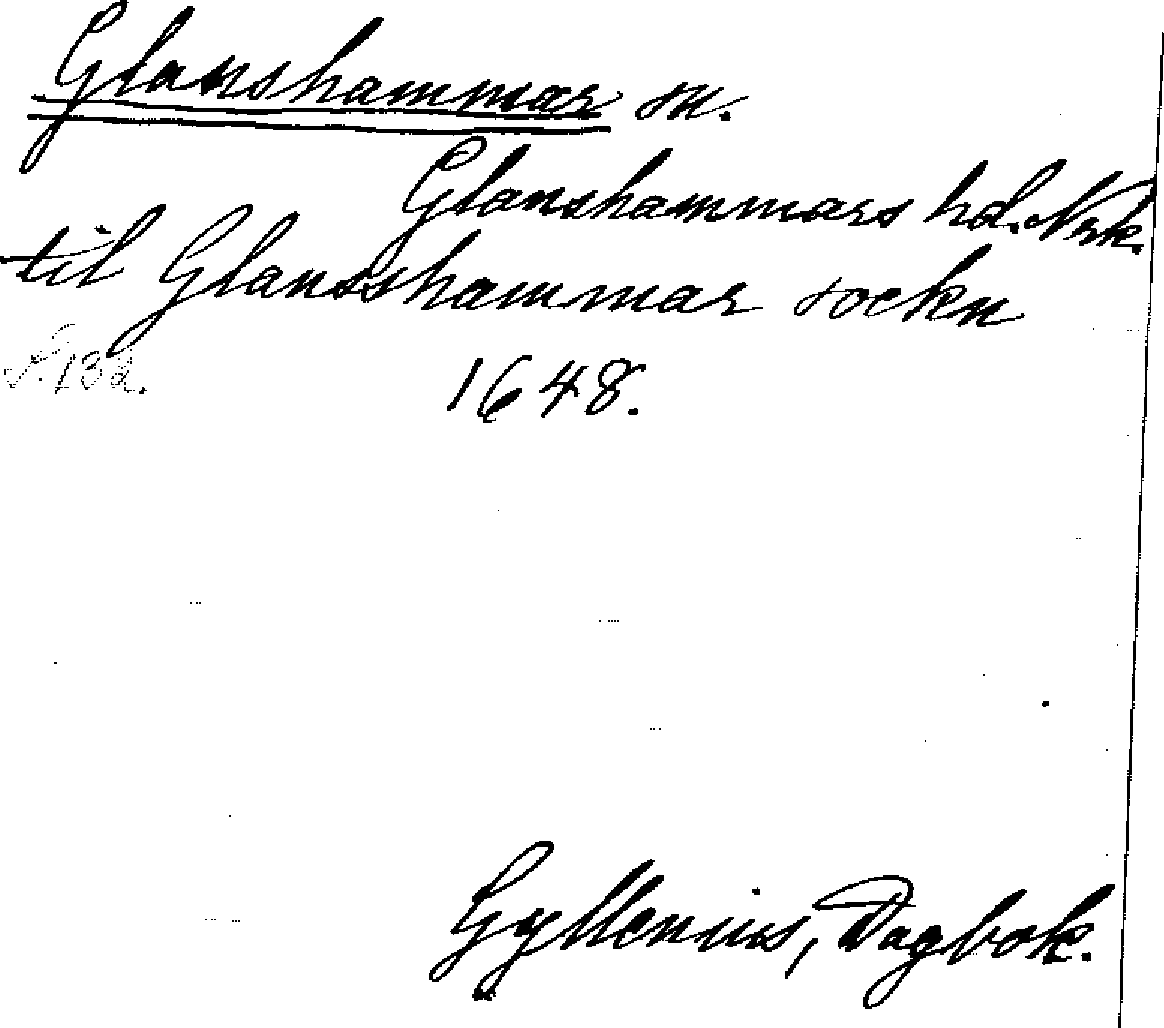 Glanshammar sn.
Glanshammars hd. Nrk.
til Glansshammar sockn
S. 132.
1648.
Gyllenius, Dagbok.